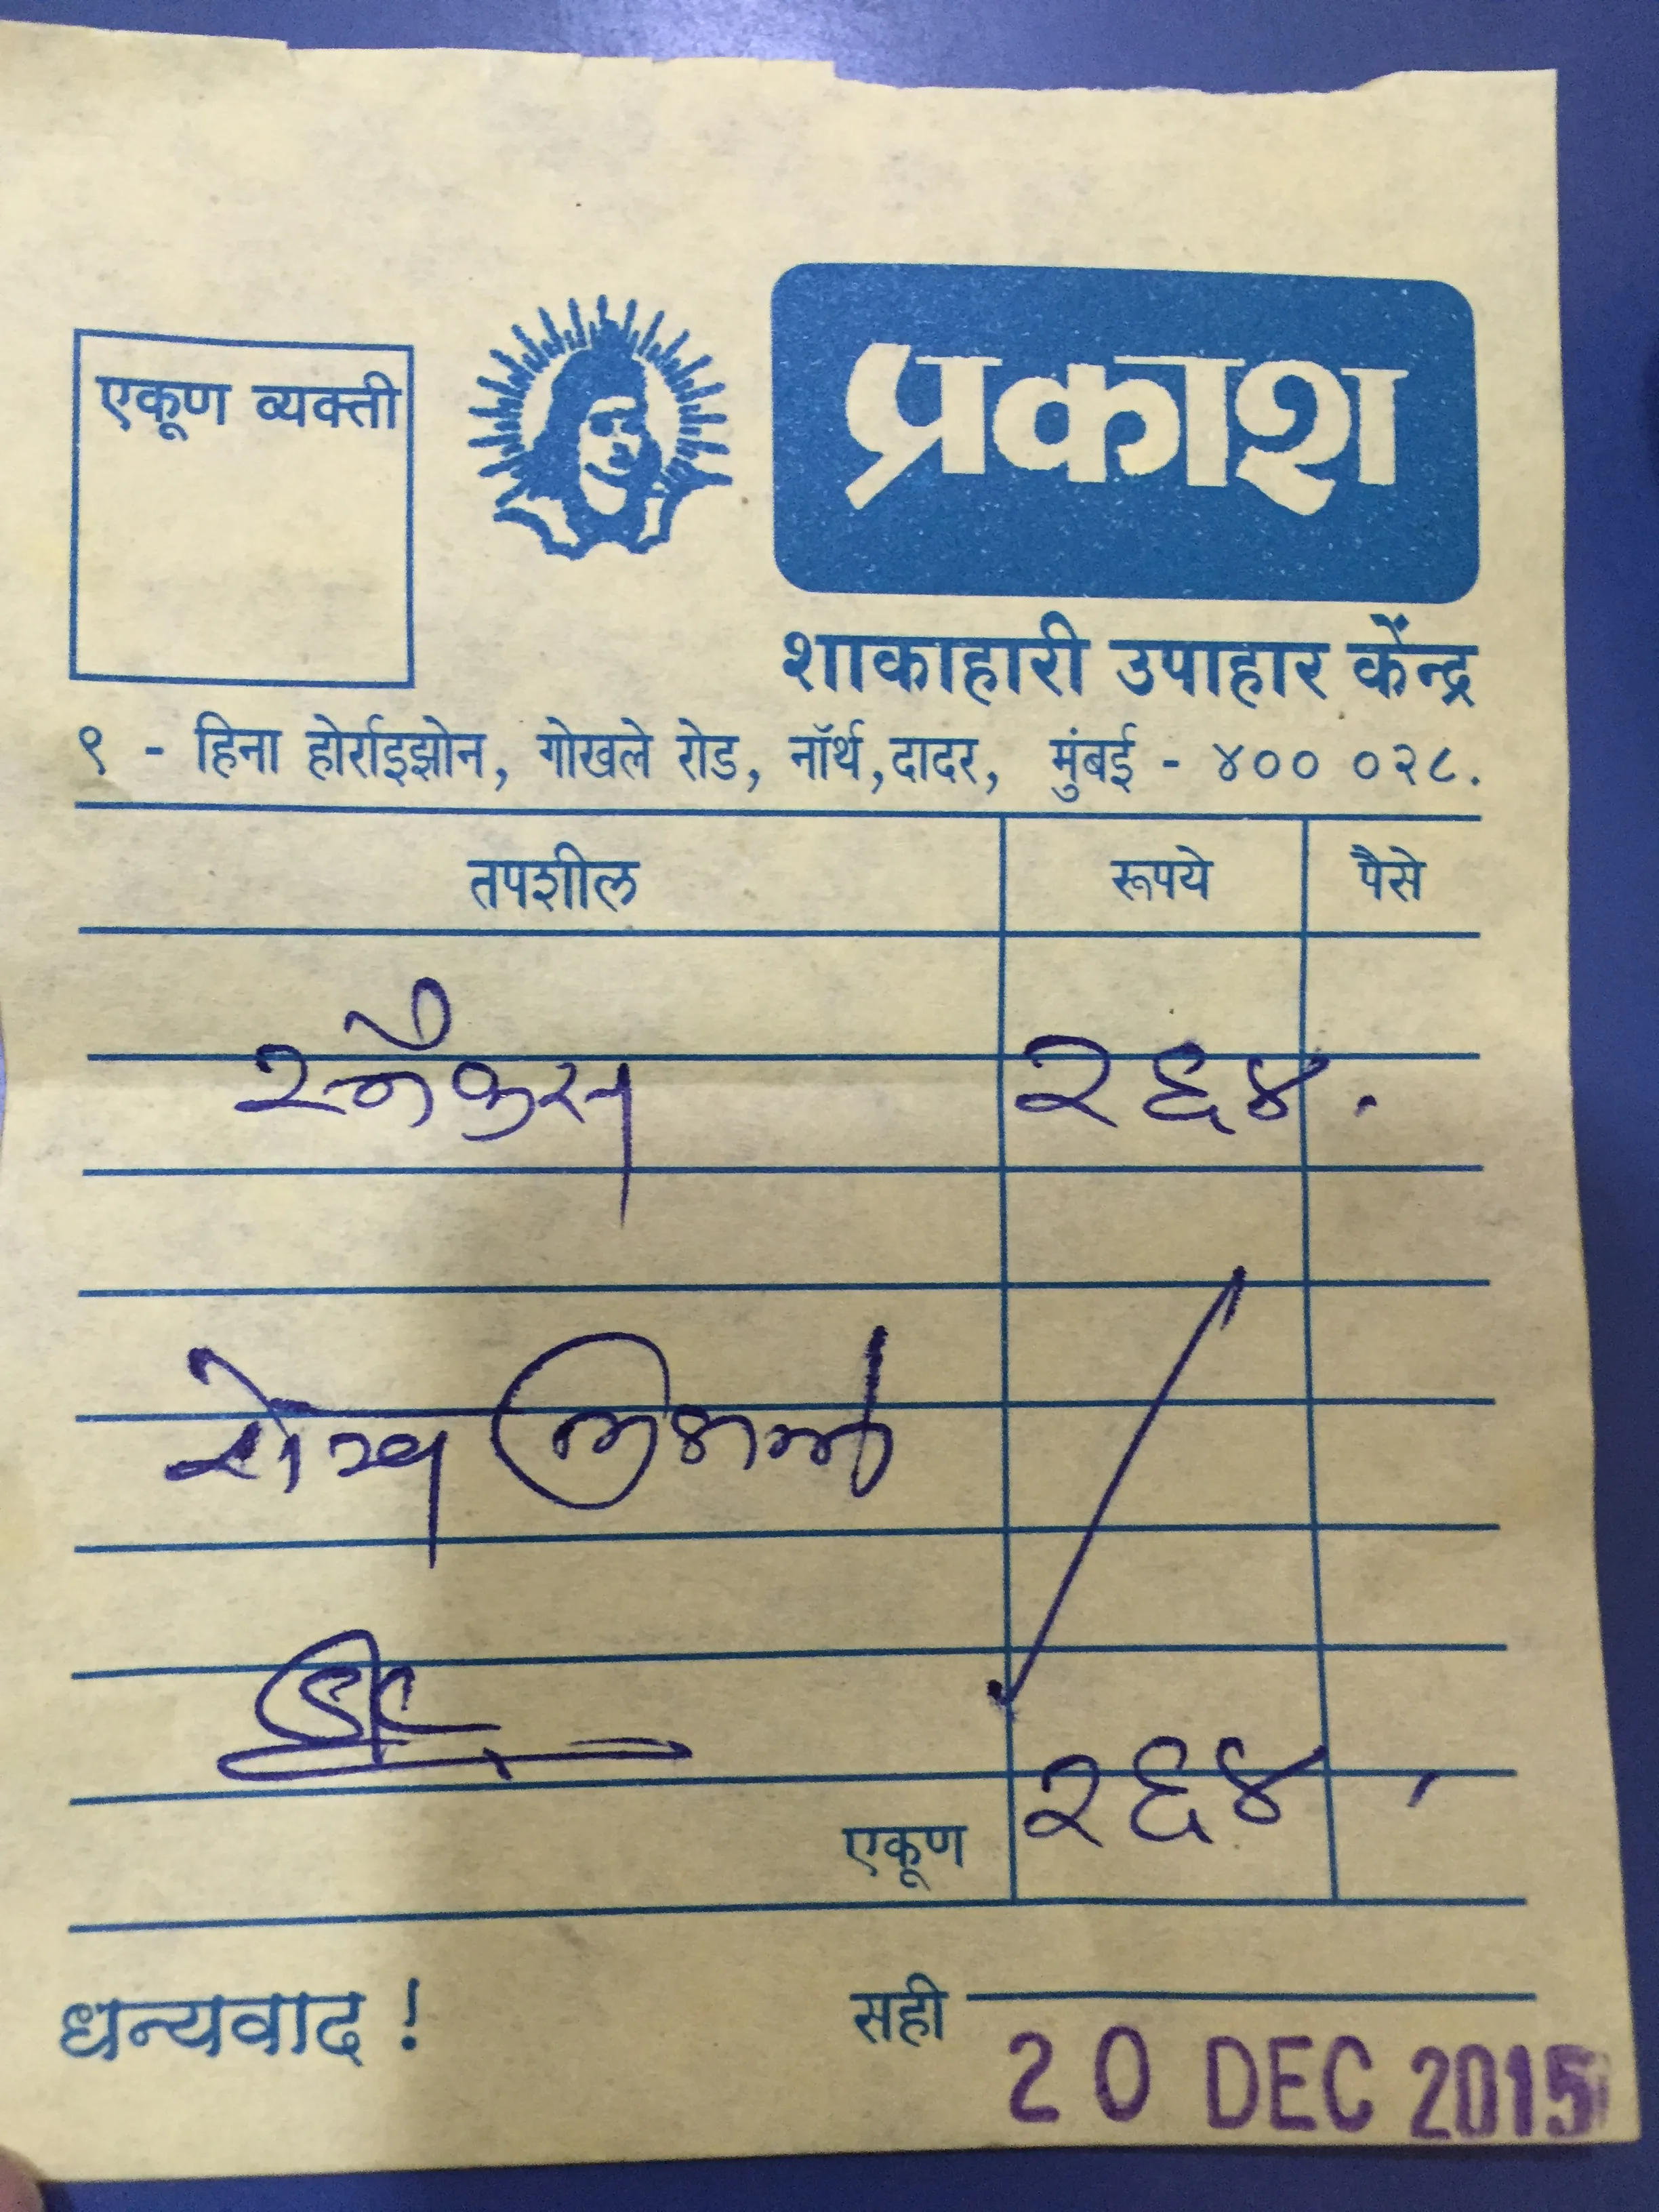 एकूण व्यक्ती
प्रकाश
शाकाहारी उपाहार केंन्द्र
९ - हिना होर्राइझोन, गोखले रोड, नॉर्थ, दादर, मुंबई - ४०० ०२८.
तपशील रूपये पैसे
स्नॅक्स २६४.
रोख मिळाले
एकूण २६४
धन्यवाद ! सही
20 DEC 2015